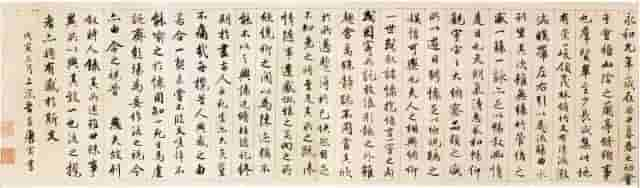 永和九年歲在癸丑暮春之初
會于會稽山陰之蘭亭脩禊事
也羣賢畢至少長咸集此地
有崇山峻領茂林脩竹又有清流激
湍暎帶左右引以為流觴曲水
列坐其次雖無絲竹管弦之
盛一觴一詠亦足以暢敘幽情
是日也天朗氣清惠風和暢仰
觀宇宙之大俯察品類之盛
所以遊目騁懷足以極視聽之
娛信可樂也夫人之相與俯仰
一世或取諸懷抱悟言一室之內
或因寄所託放浪形骸之外雖
趣舍萬殊靜躁不同當其欣
於所遇蹔得於己快然自足
不知老之將至及其所之既惓
情隨事遷感慨係之矣向之所
欣俛仰之間以為陳迹猶不
能不以之興懷況脩短隨化終
期於盡古人云死生亦大矣豈
不痛哉每攬昔人興感之由
若合一契未嘗不臨文嗟悼不
能喻之於懷固知一死生為虛
誕齊彭殤為妄作後之視今
亦由今之視昔 悲夫故列
敘時人錄其所述雖世殊事
異所以興懷其致一也後之攬
者亦將有感於斯文
戊寅三月上浣唐寅書